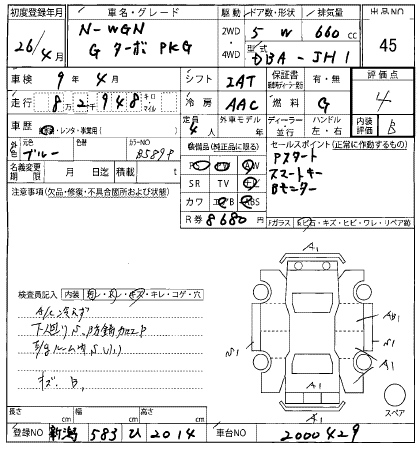 初度登録年月 車名・グレード 駆動 ドア数・形状 排気量 出品NO
26/4月 N-WGN 2WD 5 W 660 cc 45
G ターボ PKG 4WD 型式 DBA-JH1
車検 9年4月 シフト IAT 保証書 有・無 評価点
走行 8万2948 キロ マイル 冷房 AAC 燃料 G 4
車歴 レンタ・事業用 定員 4人 外車モデル 年 ディーラー 並行 ハンドル 左・右 内装評価 B
外色 元色 ブルー 色替 カラーNO B589P 装備品(純正品に限る) セールスポイント(正常に作動するもの)
名義変更期限 月 日迄 積載 t PS PW AW Pスタート
SR TV ナビ スマートキー
注意事項(欠品・修復・不具合箇所および状態) カワ エアB ABS Bモニター
R券 8680円
Fガラス 飛石・キズ・ヒビ・ワレ・リペア跡
検査員記入 内装 キレ・コゲ・穴
A/C冷えず
下廻りS、防錆加工P
キズ. B1
A1
AB1
S1
S1
A1
A1
A1
スペア
長さ cm 幅 cm 高さ cm
登録NO 新潟 583 ひ 2014 車台NO 2000429